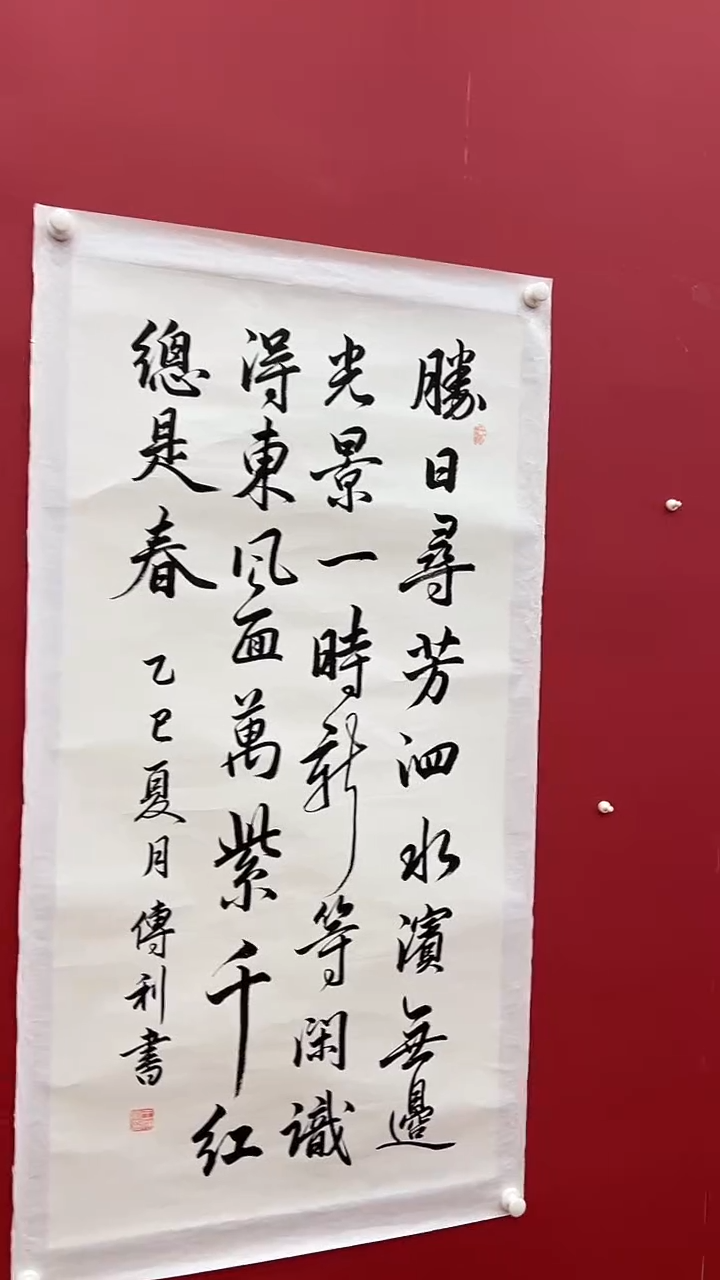 勝日尋芳泗水濱無邊
光景一時新等閑識
得東风面萬紫千红
總是春
乙巳夏月傳利書